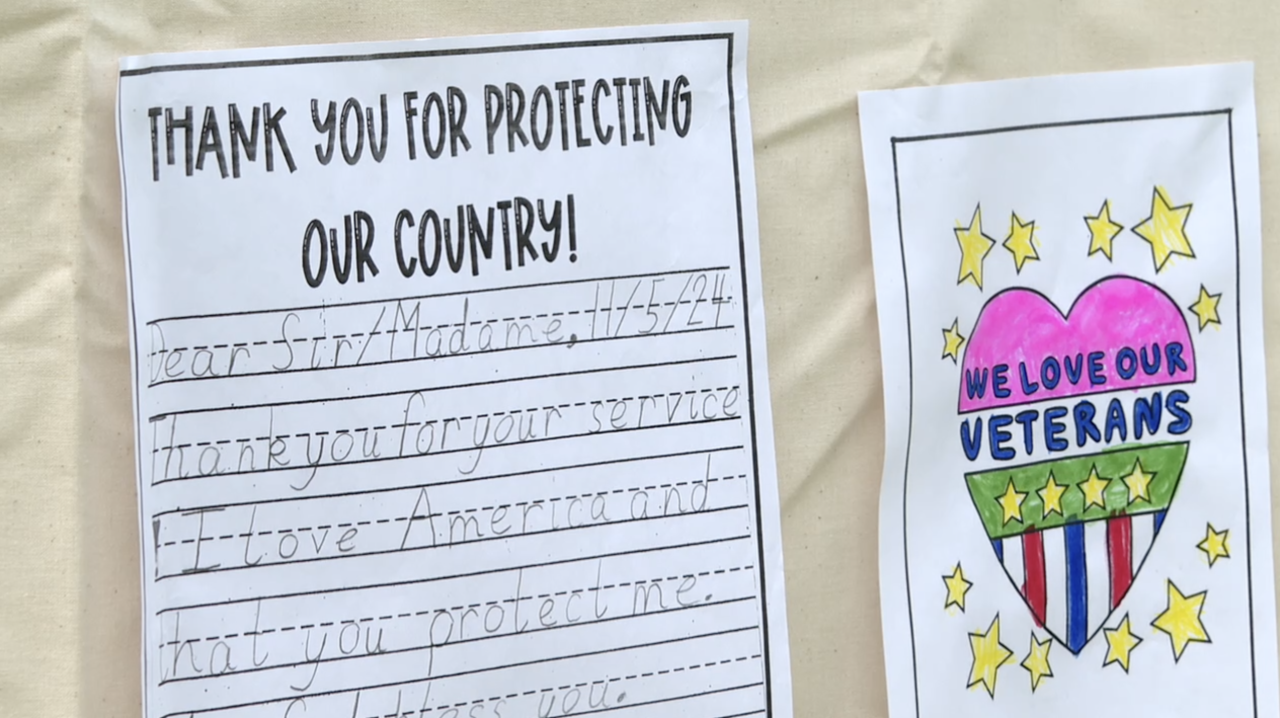 THANK YOU FOR PROTECTING
OUR COUNTRY!
Dear Sir/Madame, 11/5/24
Thank you for your service
I love America and
that you protect me.
bless you.
WE LOVE OUR
VETERANS